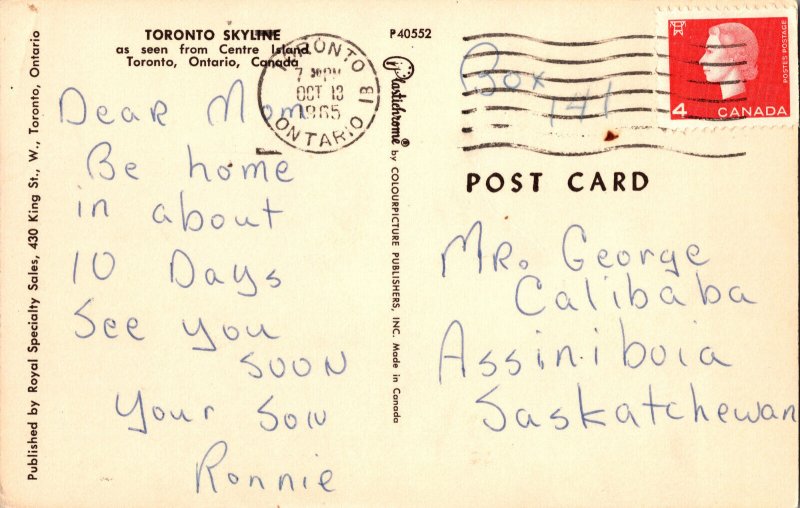 TORONTO SKYLINE
as seen from Centre Island
Toronto, Ontario, Canada
P40552
TORONTO
OCT 13
1965
ONTARIO
Dear Mom
Be home
in about
10 Days
See you
soon
Your Son
Ronnie
Published by Royal Specialty Sales, 430 King St., W., Toronto, Ontario
Plastichrome® by COLOURPICTURE PUBLISHERS, INC. Made in Canada
Box
141
POSTES POSTAGE
4 CANADA
POST CARD
MR. George
Calibaba
Assiniboia
Saskatchewan